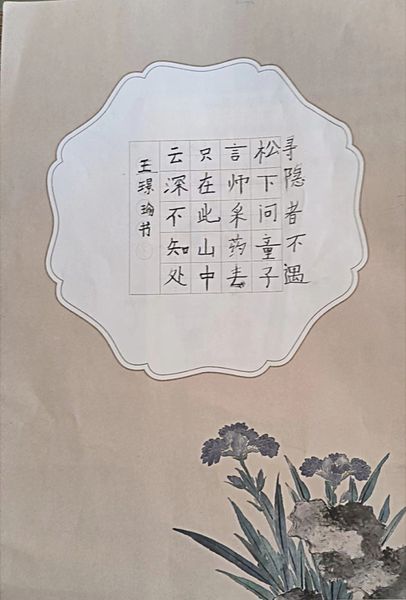 寻隐者不遇
松下问童子
言师采药去
只在此山中
云深不知处
王璟瑜书